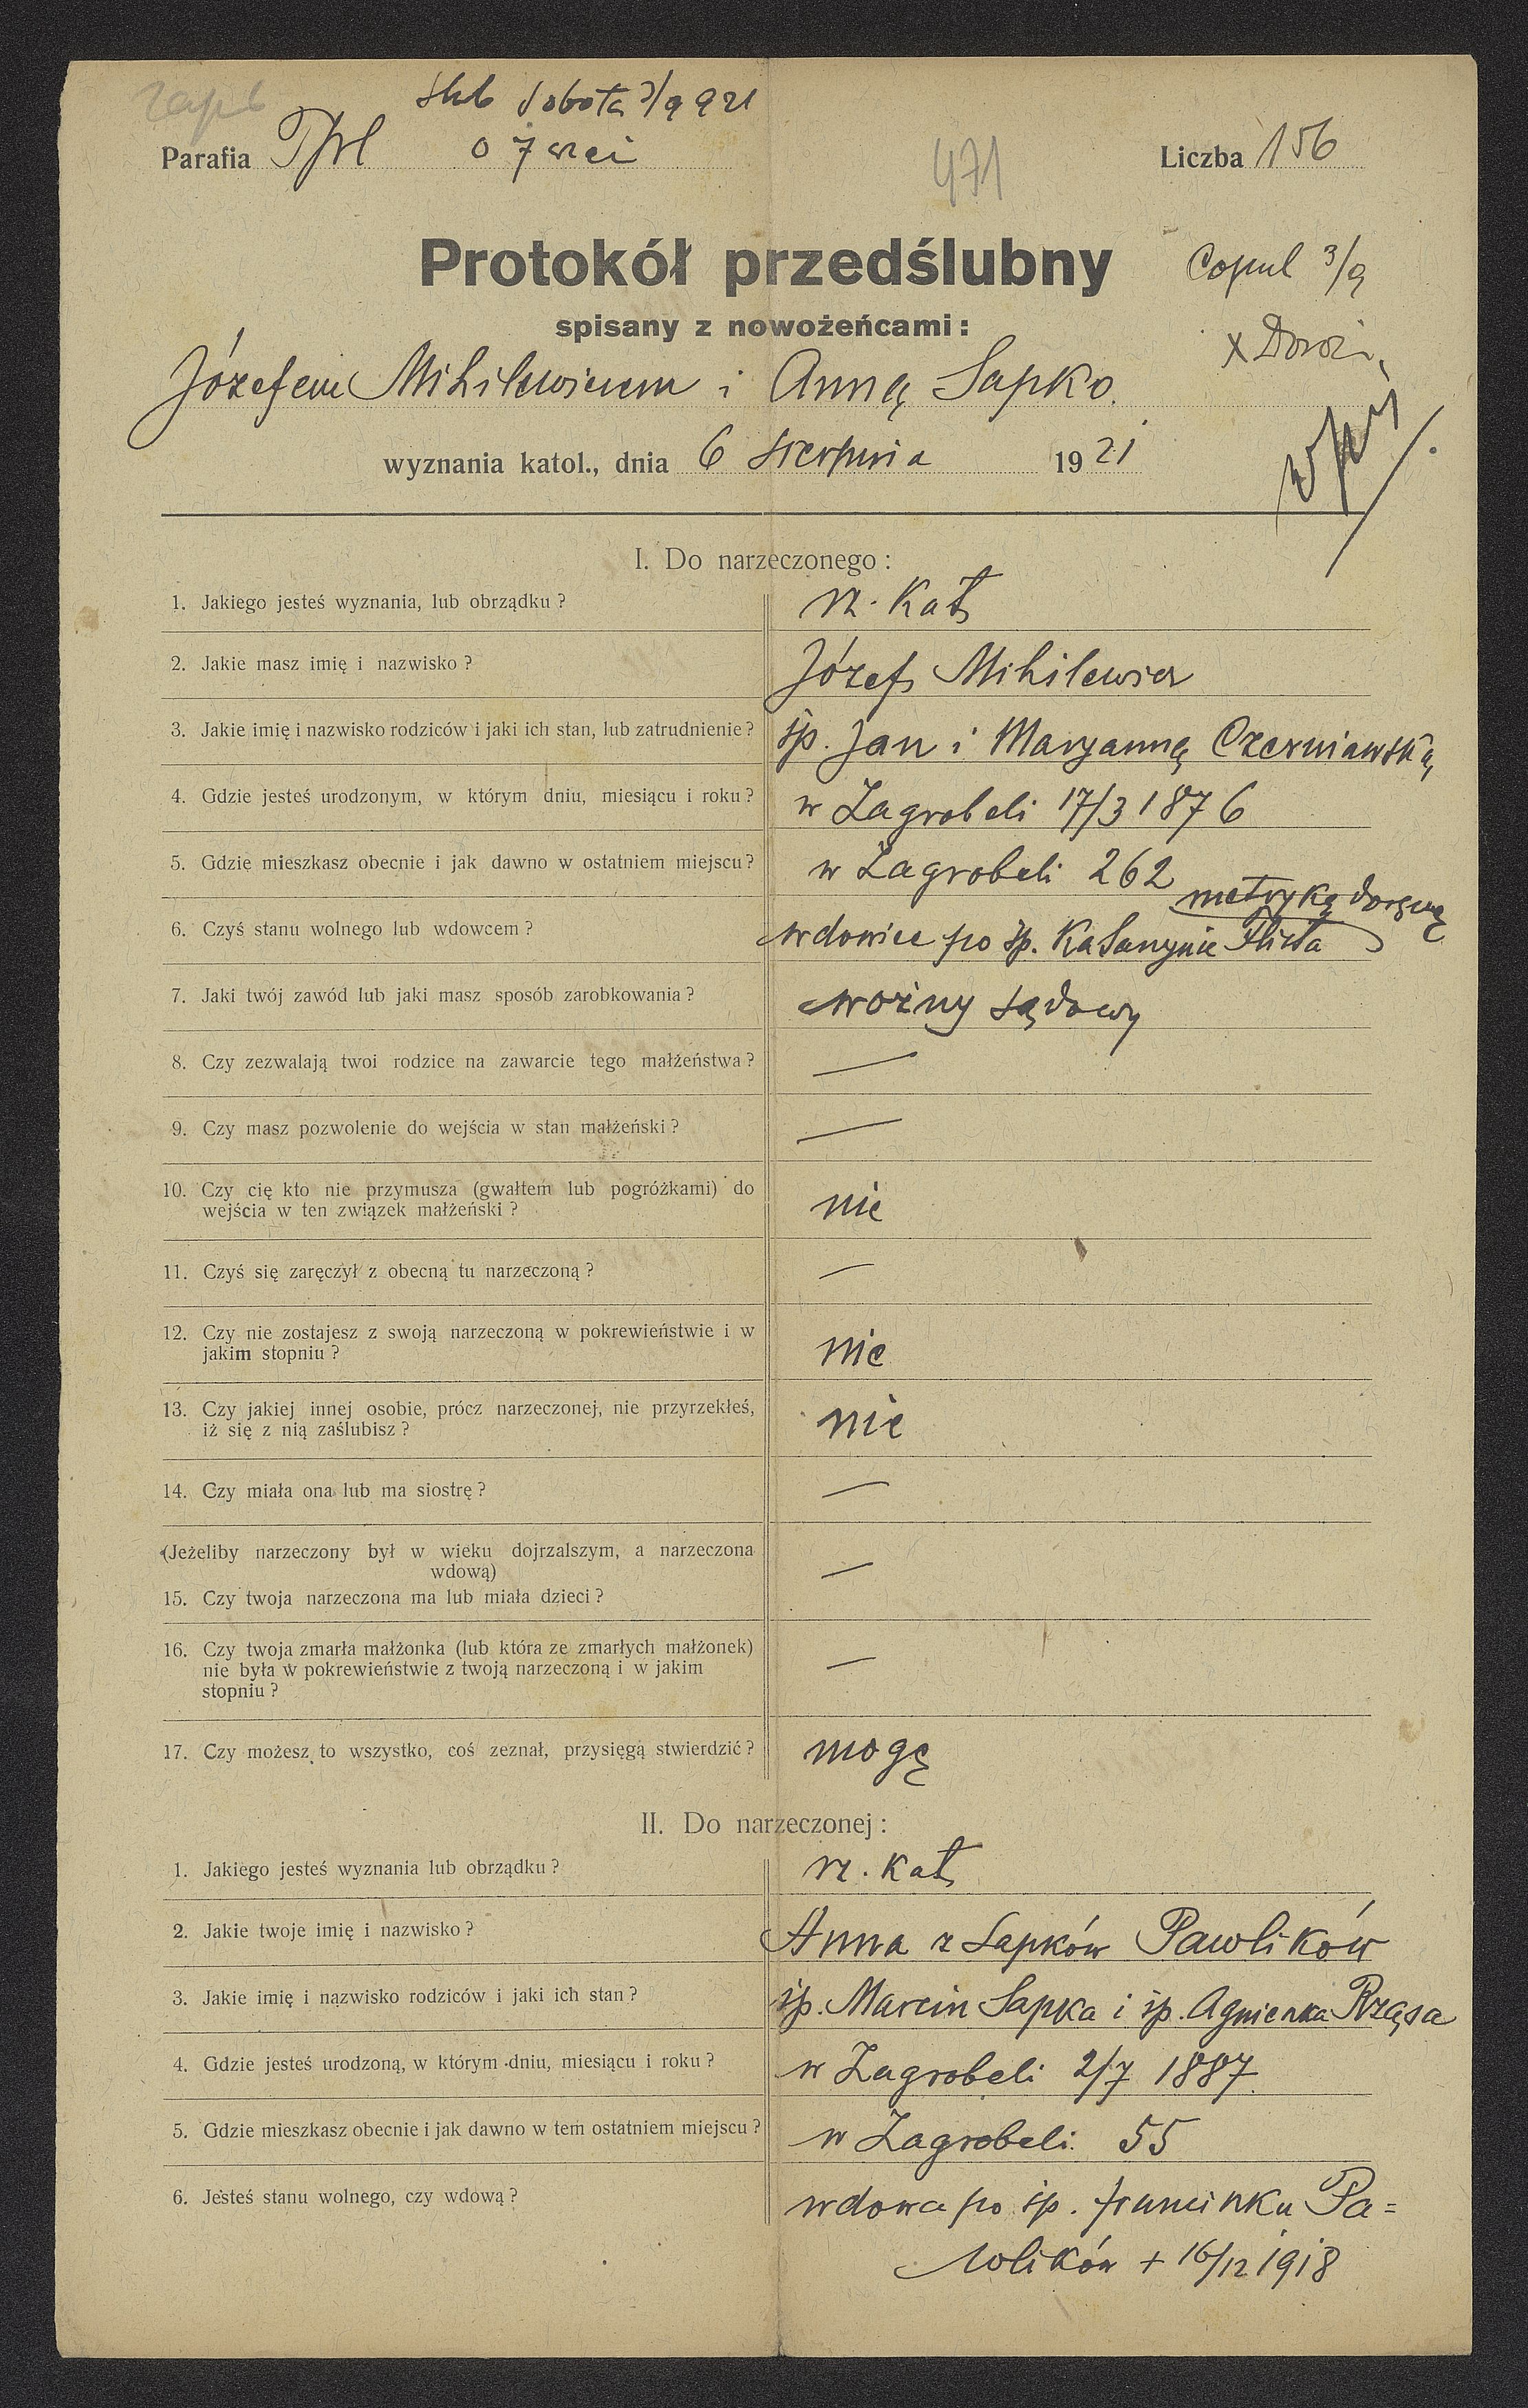 zapł
ślub sobota 3/9 921
Parafia Tpl o 7 wiecz Liczba 156
471
Protokół przedślubny Copul 3/9
spisany z nowożeńcami:
Józefem Mihilewiczem i Anną Sapko.
wyznania katol., dnia 6 sierpnia 1921
I. Do narzeczonego:
1. Jakiego jesteś wyznania, lub obrządku? rz. kat
2. Jakie masz imię i nazwisko? Józef Mihilewicz
3. Jakie imię i nazwisko rodziców i jaki ich stan, lub zatrudnienie? śp. Jan i Maryanną Czerniawską
4. Gdzie jesteś urodzonym, w którym dniu, miesiącu i roku? w Zagrobeli 17/3 1876
5. Gdzie mieszkasz obecnie i jak dawno w ostatniem miejscu? w Zagrobeli 262
metryką doręczą
6. Czyś stanu wolnego lub wdowcem? wdowiec po śp. Katarzynie
7. Jaki twój zawód lub jaki masz sposób zarobkowania? woźny sądowy
8. Czy zezwalają twoi rodzice na zawarcie tego małżeństwa? —
9. Czy masz pozwolenie do wejścia w stan małżeński? —
10. Czy cię kto nie przymusza (gwałtem lub pogróżkami) do
wejścia w ten związek małżeński? nie
11. Czyś się zaręczył z obecną tu narzeczoną? —
12. Czy nie zostajesz z swoją narzeczoną w pokrewieństwie i w
jakim stopniu? nie
13. Czy jakiej innej osobie, prócz narzeczonej, nie przyrzekłeś,
iż się z nią zaślubisz? nie
14. Czy miała ona lub ma siostrę? —
(Jeżeliby narzeczony był w wieku dojrzalszym, a narzeczona
wdową) —
15. Czy twoja narzeczona ma lub miała dzieci?
16. Czy twoja zmarła małżonka (lub która ze zmarłych małżonek)
nie była w pokrewieństwie z twoją narzeczoną i w jakim —
stopniu?
17. Czy możesz to wszystko, coś zeznał, przysięgą stwierdzić? mogę
II. Do narzeczonej:
1. Jakiego jesteś wyznania lub obrządku? rz. kat
2. Jakie twoje imię i nazwisko? Anna z Sapków Pawlików
3. Jakie imię i nazwisko rodziców i jaki ich stan? śp. Marcin Sapka i śp. Agnieszka Rząsa
4. Gdzie jesteś urodzoną, w którym dniu, miesiącu i roku? w Zagrobeli 2/7 1887
5. Gdzie mieszkasz obecnie i jak dawno w tem ostatniem miejscu? w Zagrobeli 55
6. Jesteś stanu wolnego, czy wdową? wdowa po śp. Franciszku Pa=
wlików + 16/12 1918